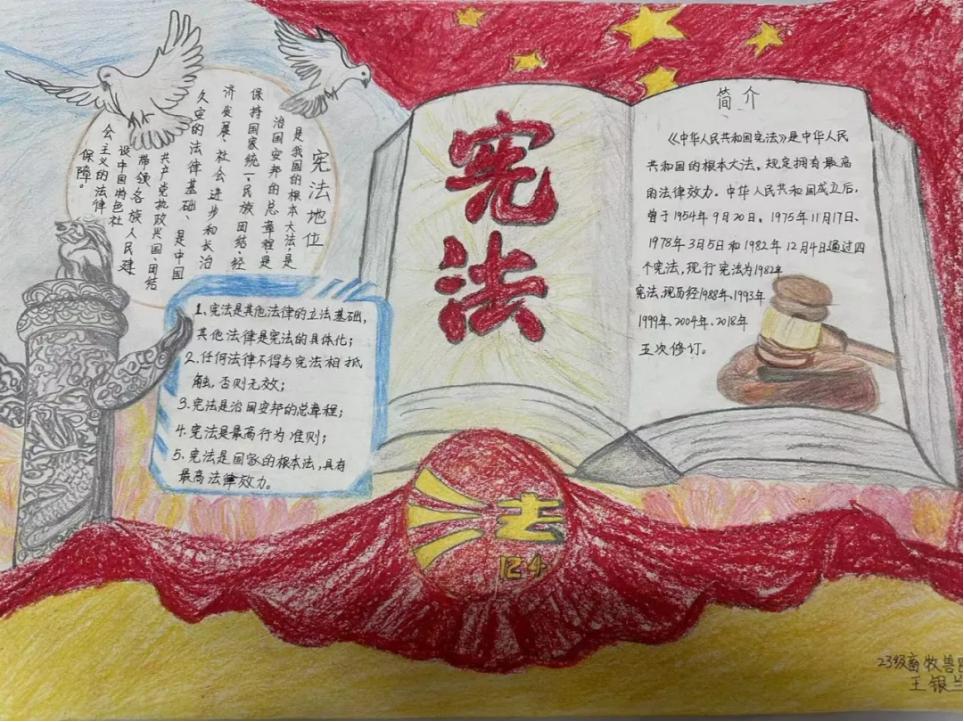 宪法地位
是我国的根本大法,是
治国安邦的总章程,是
保持国家统一、民族团结、经
济发展、社会进步和长治
久安的法律基础、是中国
共产党执政兴国、团结
带领各族人民建
设中国特色社
会主义的法律
保障。
宪法
简介
《中华人民共和国宪法》是中华人民
共和国的根本大法,规定拥有最高
的法律效力。中华人民共和国成立后,
曾于1954年9月20日、1975年11月17日、
1978年3月5日和1982年12月4日通过四
个宪法,现行宪法为1982年
宪法,现历经1988年、1993年
1999年、2004年、2018年
五次修订。
1、宪法是其他法律的立法基础,
其他法律是宪法的具体化;
2、任何法律不得与宪法相抵
触,否则无效;
3、宪法是治国安邦的总章程;
4、宪法是最高行为准则;
5、宪法是国家的根本法,具有
最高法律效力。
法
12 4
23级畜牧兽
王银兰